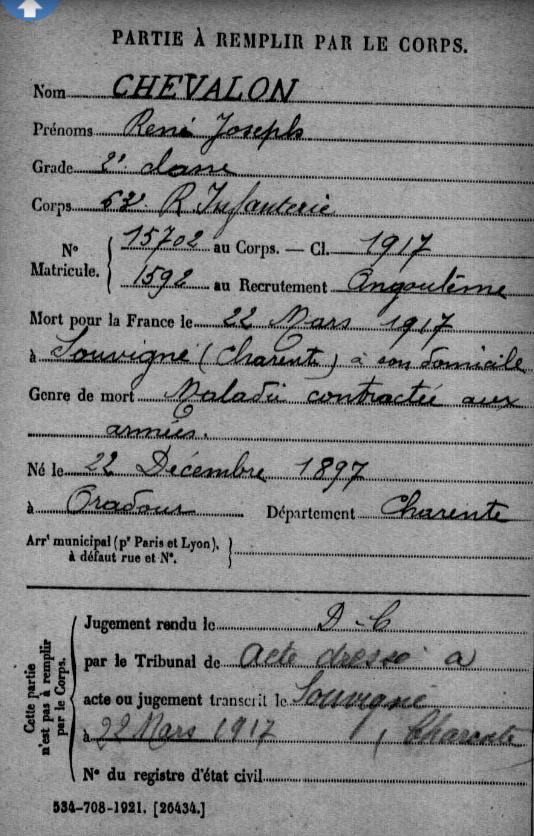 PARTIE À REMPLIR PAR LE CORPS.
Nom CHEVALON
Prénoms René Joseph
Grade 2e classe
Corps 62e R Infanterie
N° Matricule. 15702 au Corps. — Cl. 1917
1592 au Recrutement Angoulême
Mort pour la France le 22 Mars 1917
à Souvigné (Charente) à son domicile
Genre de mort Maladie contractée aux
armées.
Né le 22 Décembre 1897
à Oradour Département Charente
Arrt municipal (pr Paris et Lyon),
à défaut rue et N°.
Cette partie n'est pas à remplir par le Corps.
Jugement rendu le D-C
par le Tribunal de Acte dressé a
acte ou jugement transcrit le Souvigné
à 22 Mars 1917 , Charente
N° du registre d'état civil
534-708-1921. [26434.]